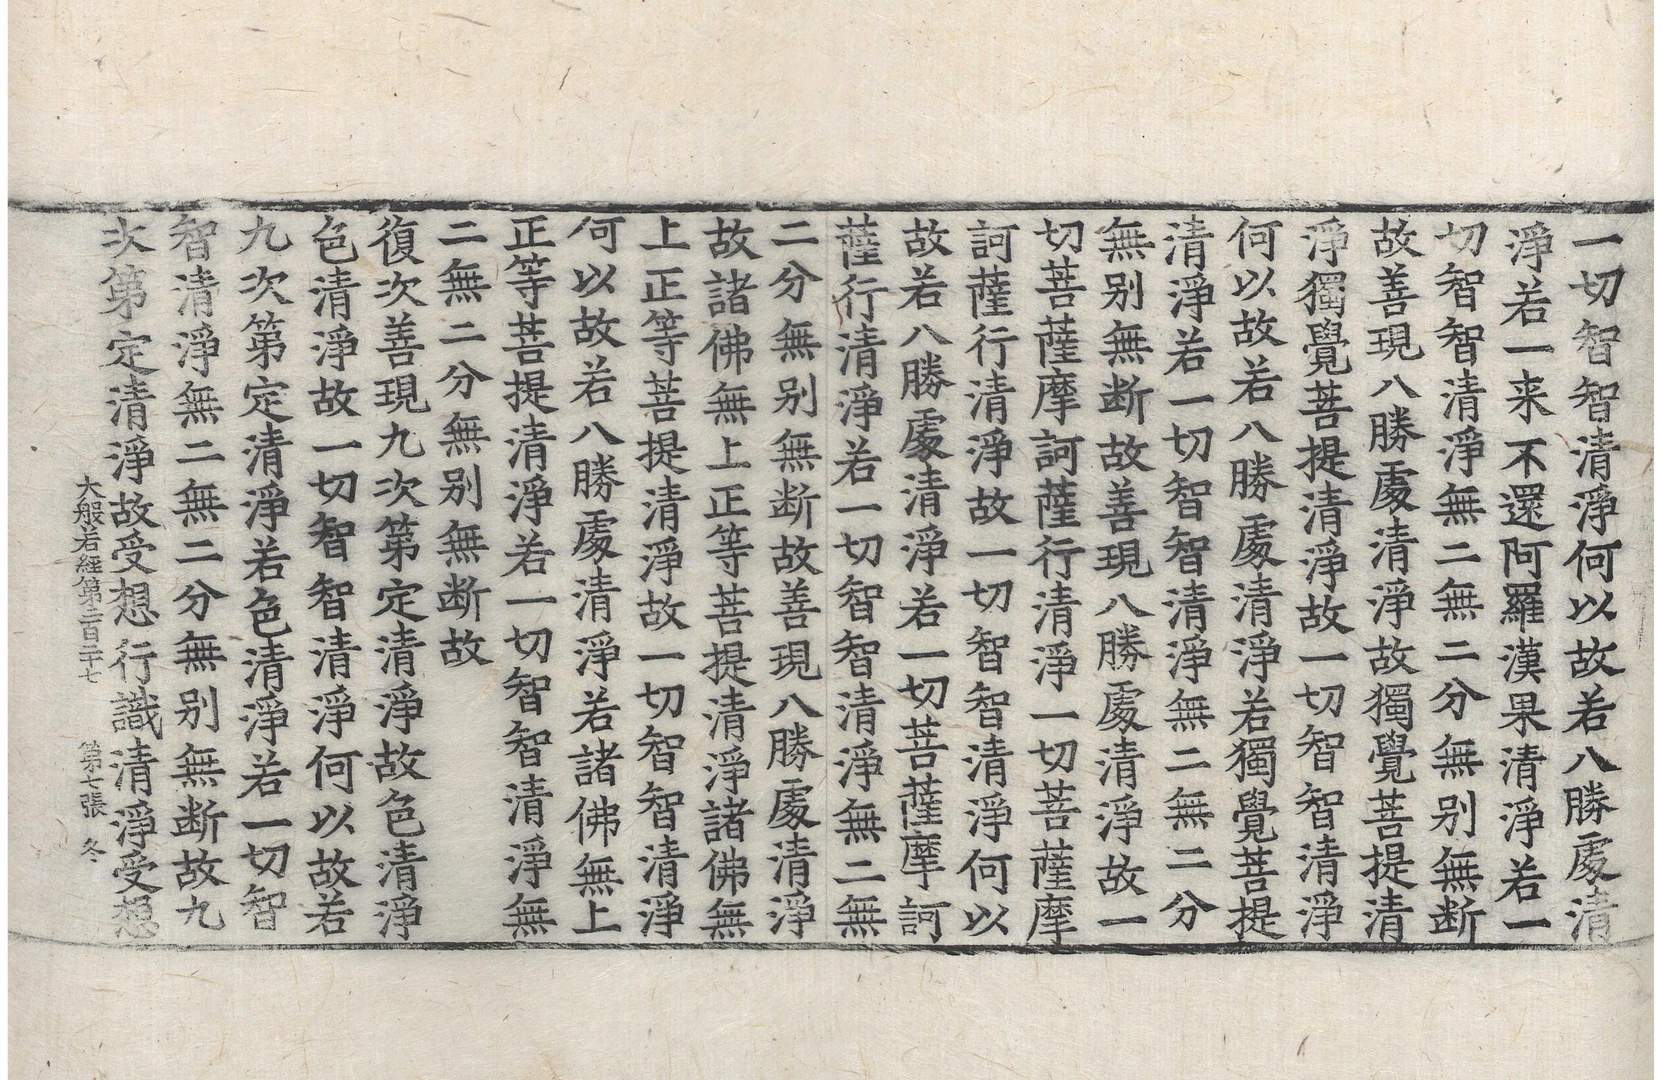 一切智智清淨何以故若八勝處清
淨若一来不還阿羅漢果清淨若一
切智智清淨無二無二分無别無断
故善現八勝處清淨故獨覺菩提清
淨獨覺菩提清淨故一切智智清淨
何以故若八勝處清淨若獨覺菩提
清淨若一切智智清淨無二無二分
無别無断故善現八勝處清淨故一
切菩薩摩訶薩行清淨一切菩薩摩
訶薩行清淨故一切智智清淨何以
故若八勝處清淨若一切菩薩摩訶
薩行清淨若一切智智清淨無二無
二分無别無断故善現八勝處清淨
故諸佛無上正等菩提清淨諸佛無
上正等菩提清淨故一切智智清淨
何以故若八勝處清淨若諸佛無上
正等菩提清淨若一切智智清淨無
二無二分無别無断故
復次善現九次第定清淨故色清淨
色清淨故一切智智清淨何以故若
九次第定清淨若色清淨若一切智
智清淨無二無二分無别無断故九
次第定清淨故受想行識清淨受想
大般若經第二百二十七 第七張 冬